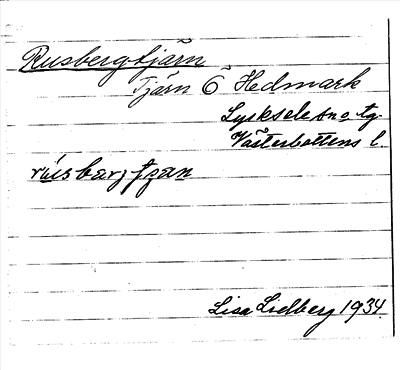 Rusbergtjärn
Tjärn Ö Hedmark
Lycksele sno tg.
Västerbottens l.
Lisa Lidberg 1934.